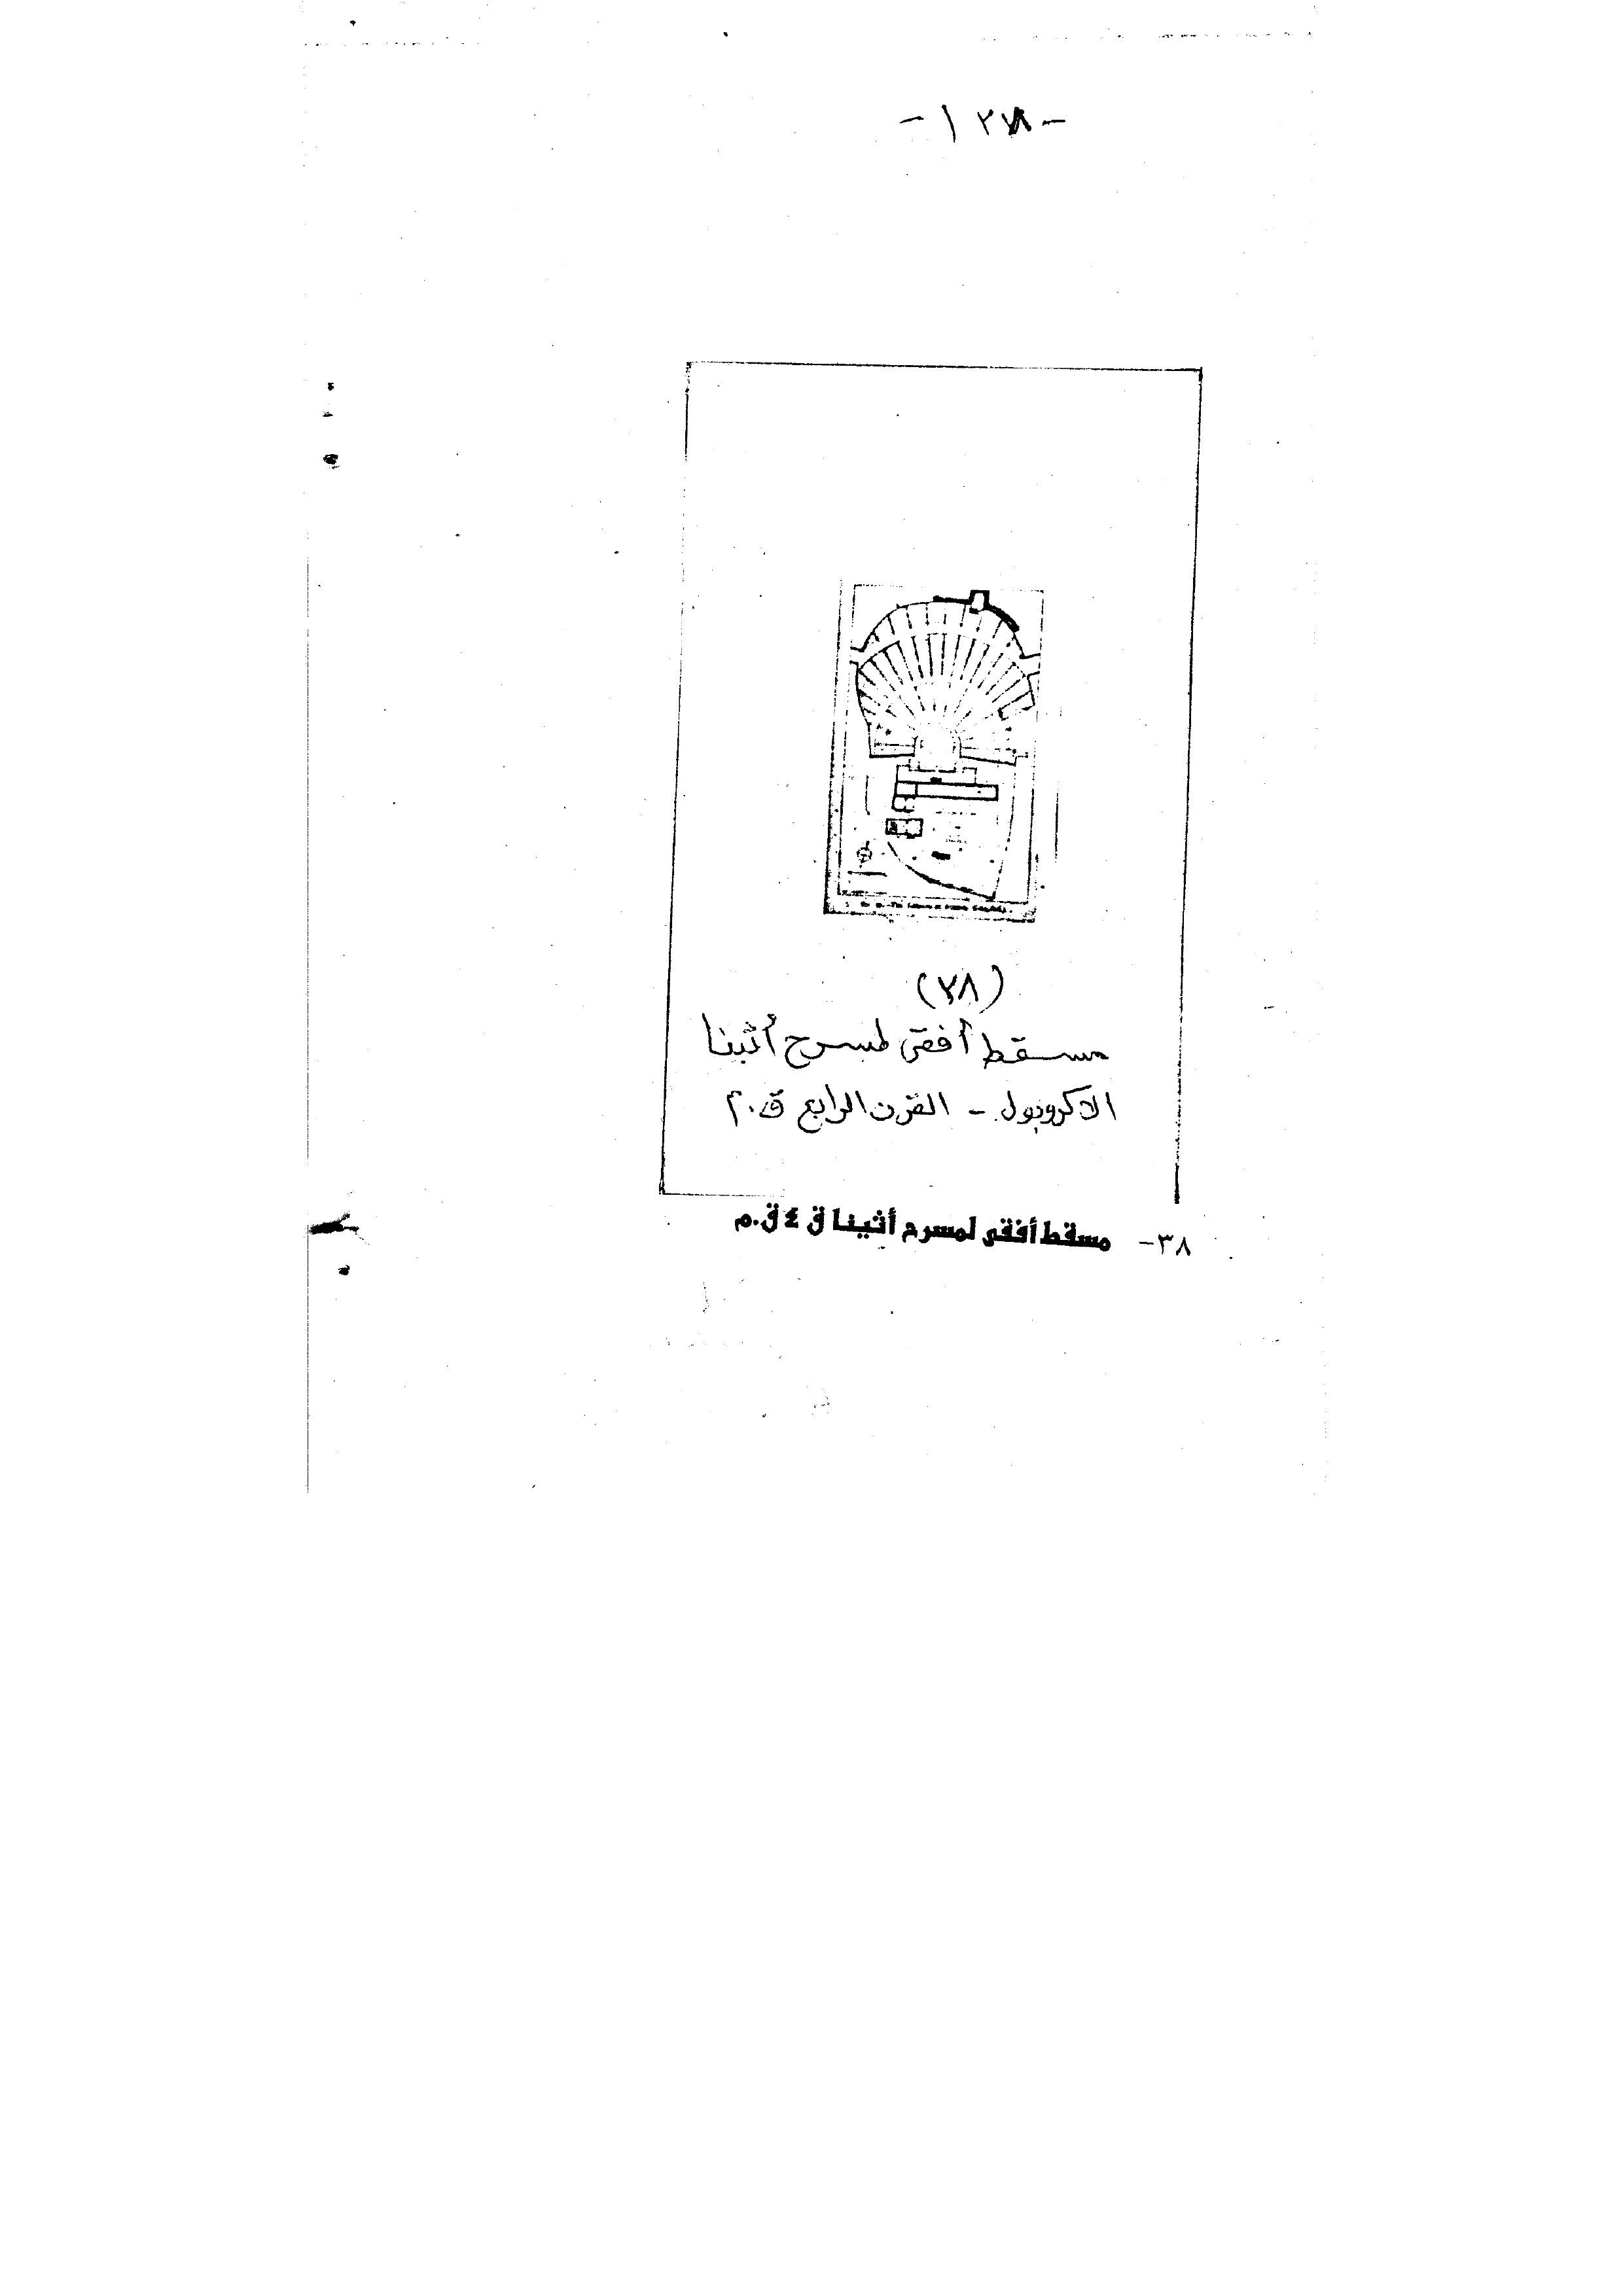 (٣٨)
مسقط أفقى لمسرح أثينا
الاكروبول - القرن الرابع ق.م
٣٨- مسقط أفقى لمسرح أثينا ق ٤ ق.م